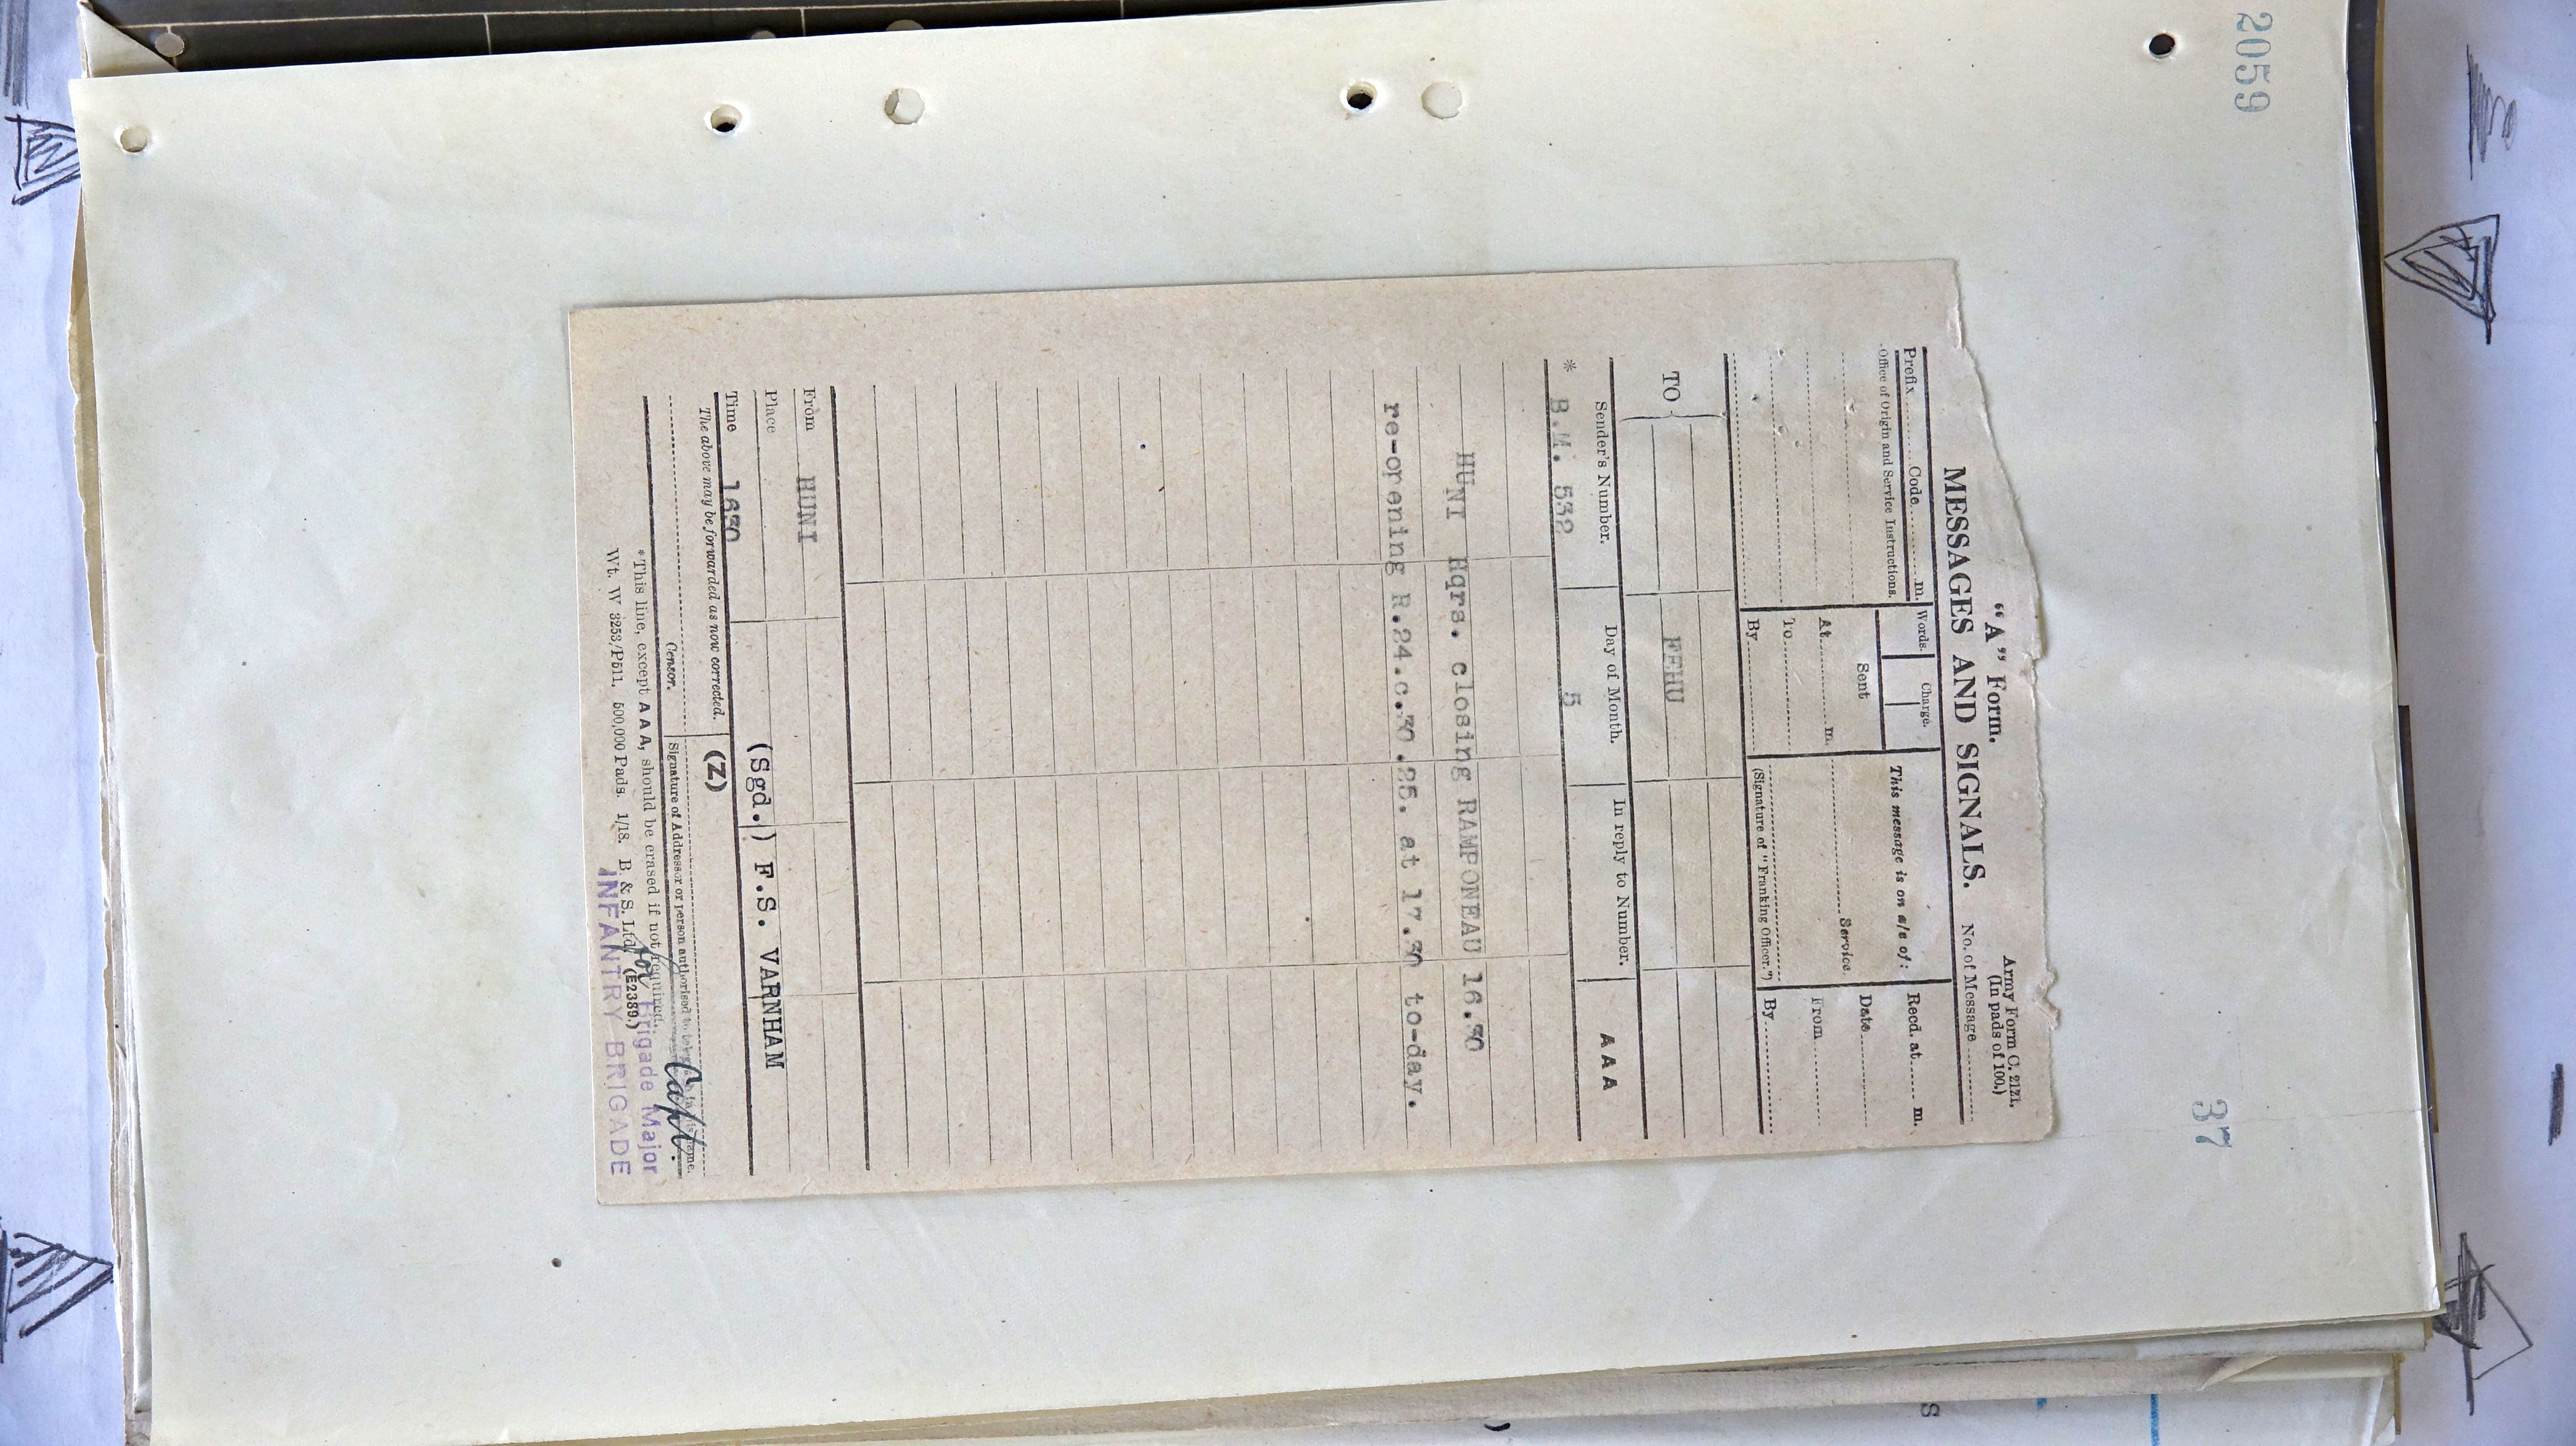 2059
37
"A" Form.
Army Form C. 2121.
(In pads of 100.)
MESSAGES AND SIGNALS.
No. of Message
Prefix Code m.
Words.
Charge.
This message is on a/c of:
Recd. at m.
Office of Origin and Service Instructions.
Sent
Date
At m.
Service.
From
To
By
(Signature of "Franking Officer.")
By
TO
FEHU
Sender's Number.
Day of Month.
In reply to Number.
AAA
* B.M. 532
5
HUNI Hqrs. closing RAMPONEAU 16.30
re-opening R.24.c.30.25. at 17.30 to-day.
From HUNI
Place
Time 1630
(Sgd.) F.S. VARNHAM
The above may be forwarded as now corrected.
(Z)
Capt.
Censor.
Signature of Addressor or person authorised to
name.
* This line, except AAA, should be erased if not required.
for Brigade Major
Wt. W 3253/P511. 500,000 Pads. 1/18. B. & S. Ltd. (E2389.)
INFANTRY BRIGADE
S